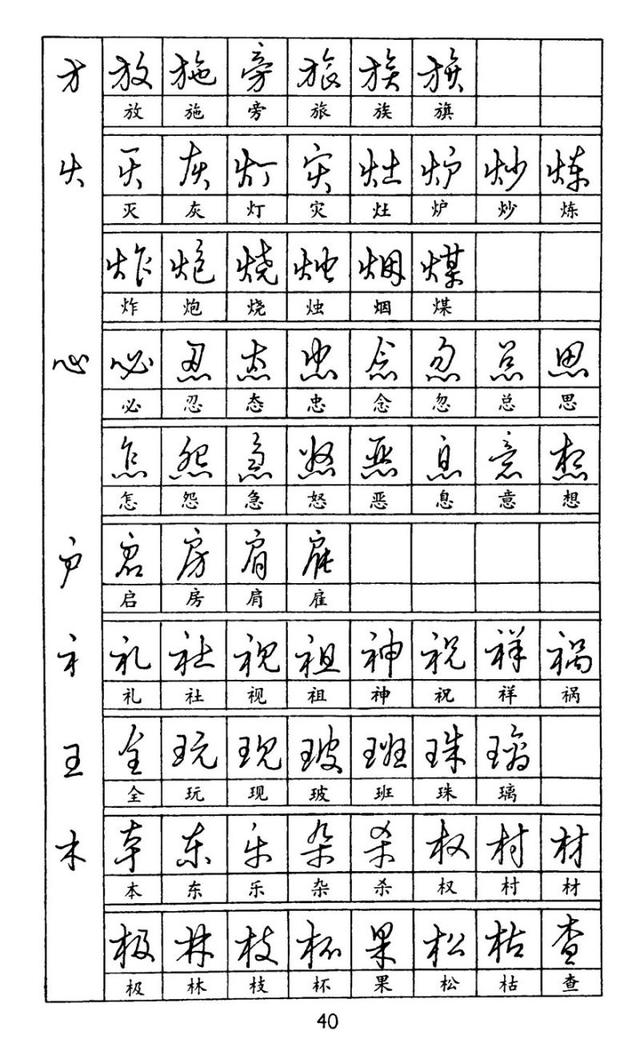 方 放 施 旁 旅 族 旗
放 施 旁 旅 族 旗
火 灭 灰 灯 灾 灶 炉 炒 炼
灭 灰 灯 灾 灶 炉 炒 炼
炸 炮 烧 烛 烟 煤
炸 炮 烧 烛 烟 煤
心 必 忍 态 忠 念 忽 总 思
必 忍 态 忠 念 忽 总 思
怎 怨 急 怒 恶 息 意 想
怎 怨 急 怒 恶 息 意 想
户 启 房 肩 雇
启 房 肩 雇
礻 礼 社 视 祖 神 祝 祥 祸
礼 社 视 祖 神 祝 祥 祸
王 全 玩 现 玻 班 珠 璃
全 玩 现 玻 班 珠 璃
木 本 东 乐 杂 杀 权 村 材
本 东 乐 杂 杀 权 村 材
极 林 枝 杯 果 松 枯 查
极 林 枝 杯 果 松 枯 查
40